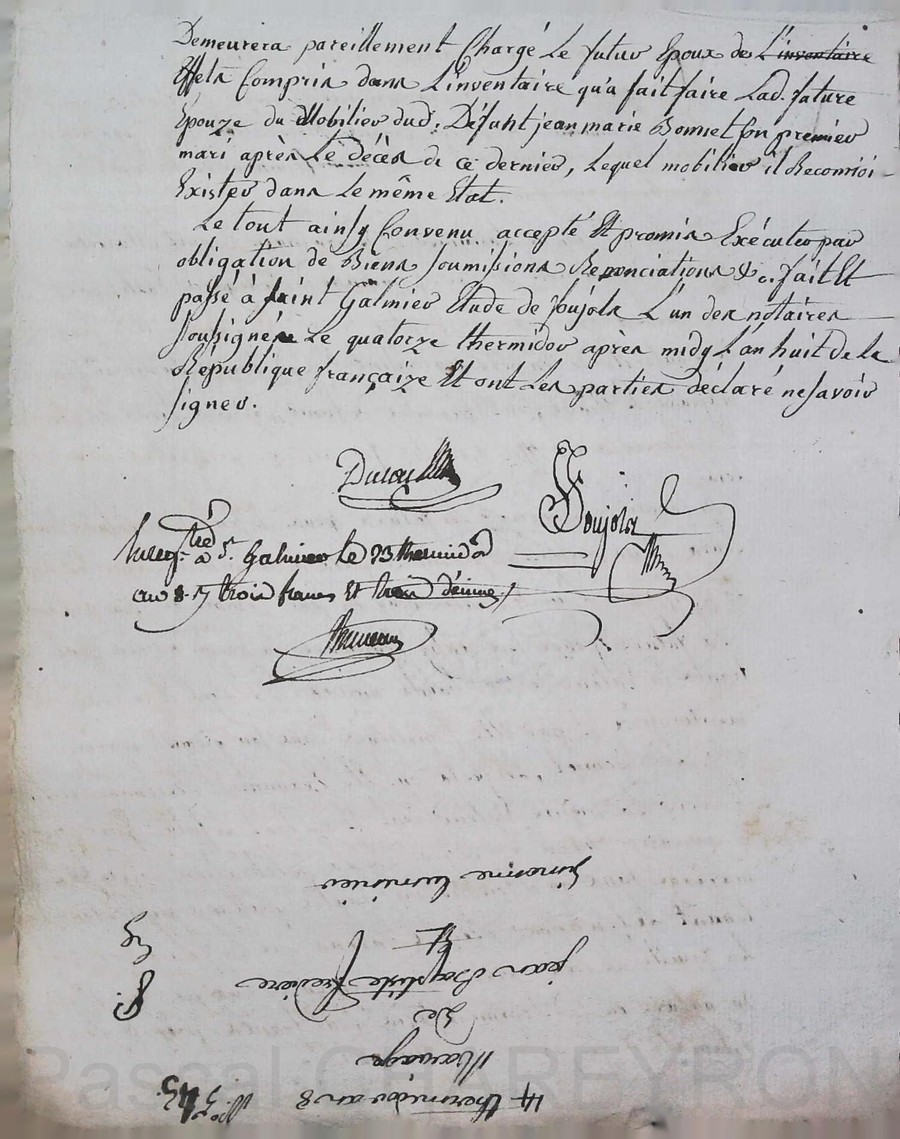 Demeurera pareillement Chargé Le futur Epoux de L'inventaire
Effets Compris dans L'inventaire qu'a fait faire Lad. future
Epouze du Mobilier dud. Défunt jean marie Bonnet son premier
mari après Le décès de ce dernier, Lequel mobilier il Reconnoi
Exister dans Le même Etat.
Le tout ainsy Convenu accepté Et promis Exécuter par
obligation de Biens soumissions Renonciations &c. fait Et
passé à saint Galmier Etude de soujols L'un des notaires
soussignés Le quatorze thermidor après midy L'an huit de la
République françaize Et ont Les parties déclaré ne savoir
signer.
Soujols
à St. Galmier le 23 thermidor
an 8. trois francs Et trois décimes
14 thermidor an 8
Mariage
De
jean Baptiste
Et
Simonne
Pascal CHAREYRON